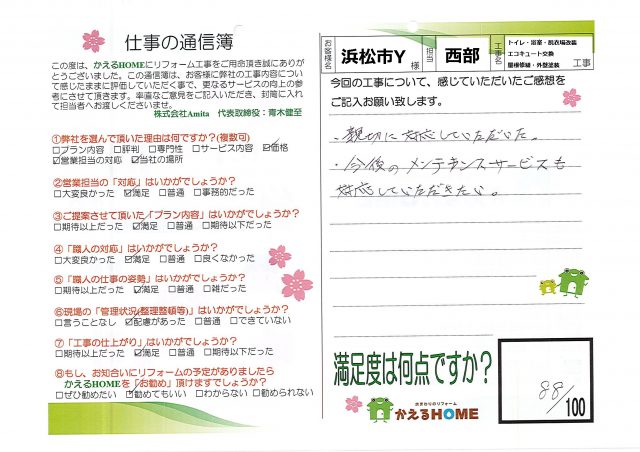 仕事の通信簿
この度は、かえるHOMEにリフォーム工事をご用命頂き誠にありが
とうございました。この通信簿は、お客様に弊社の工事内容について
感じたままに評価していただく事で、更なるサービスの向上の参
考にさせて頂きます。率直なご意見をご記入いただき、封筒に入れ
て担当者へお渡しくださいませ。
株式会社Amita 代表取締役：青木健至
①弊社を選んで頂いた理由は何ですか?(複数可)
□プラン内容 □評判 □専門性 □サービス内容 ☑価格
☑営業担当の対応 ☑当社の場所
②営業担当の「対応」はいかがでしょうか?
□大変良かった ☑満足 □普通 □事務的だった
③ご提案させて頂いた「プラン内容」はいかがでしょうか?
□期待以上だった ☑満足 □普通 □期待以下だった
④「職人の対応」はいかがでしょうか?
□大変良かった ☑満足 □普通 □良くなかった
⑤「職人の仕事の姿勢」はいかがでしょうか?
□期待以上だった ☑満足 □普通 □雑だった
⑥現場の「管理状況(整理整頓等)」はいかがでしょうか?
□言うことなし ☑配慮があった □普通 □できていない
⑦「工事の仕上がり」はいかがでしょうか?
□期待以上だった ☑満足 □普通 □期待以下だった
⑧もし、お知合いにリフォームの予定がありましたら
かえるHOMEを「お勧め」頂けますでしょうか?
□ぜひ勧めたい ☑勧めてもいい □わからない □勧められない
お客様名 浜松市Y 様 担当 西部 工事名 トイレ・浴室・脱衣場改装
エコキュート交換
屋根修繕・外壁塗装 工事
今回の工事について、感じていただいたご感想を
ご記入お願い致します。
・親切に対応していただいた。
・今後のメンテナンスサービスも
対応していただきたい。
満足度は何点ですか?
88/100
水まわりのリフォーム
かえるHOME